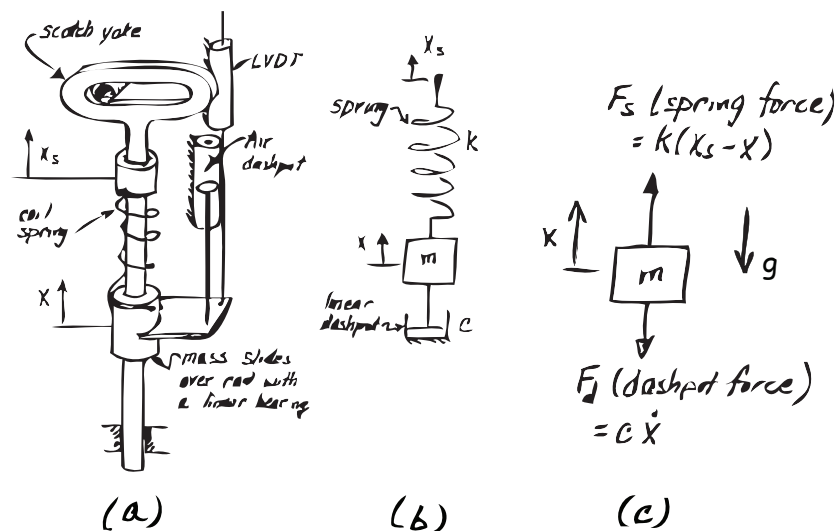 scotch yoke
LVDT
Air
dashpot
xs
coil
spring
x
mass slides
over rod with
a linear bearing
(a)
xs
spring
k
x
m
linear
dashpot
c
(b)
Fs (spring force)
= k(xs-x)
x
m
g
Fd (dashpot force)
= c ẋ
(c)